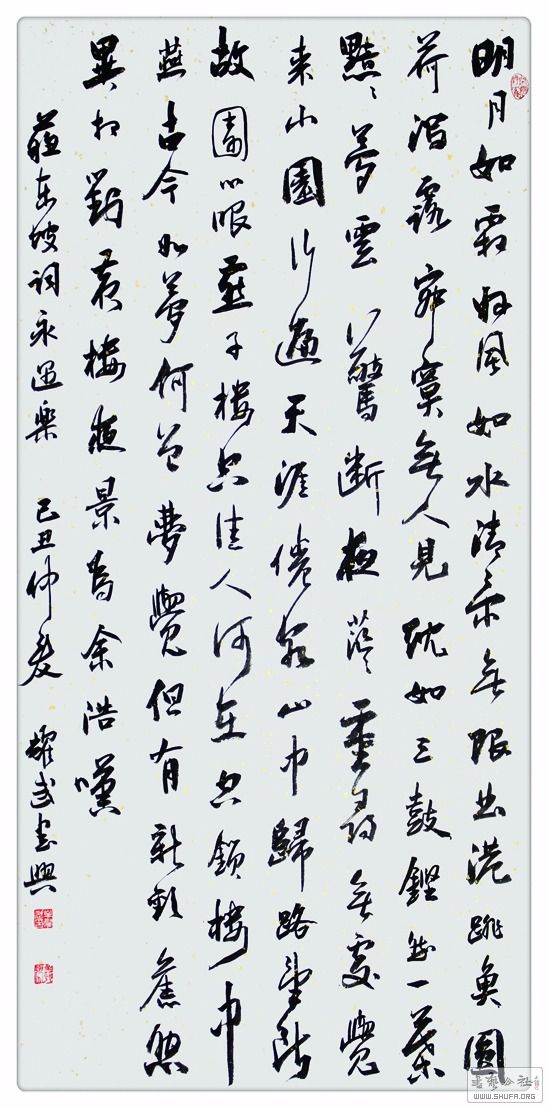 明月如霜好風如水清景無限曲港跳魚圓
荷瀉露寂寞無人見紞如三鼓鏗然一葉
黯〻夢雲驚斷夜茫〻重尋無處覺
来小園行遍天涯倦客山中歸路望斷
故園心眼燕子樓空佳人何在空鎖樓中
燕古今如夢何曾夢覺但有新歡舊怨
異時對黃樓夜景為余浩嘆
蘇東坡詞永遇樂 己丑仲夏 耀武書興
書藝公社
WWW.SHUFA.ORG